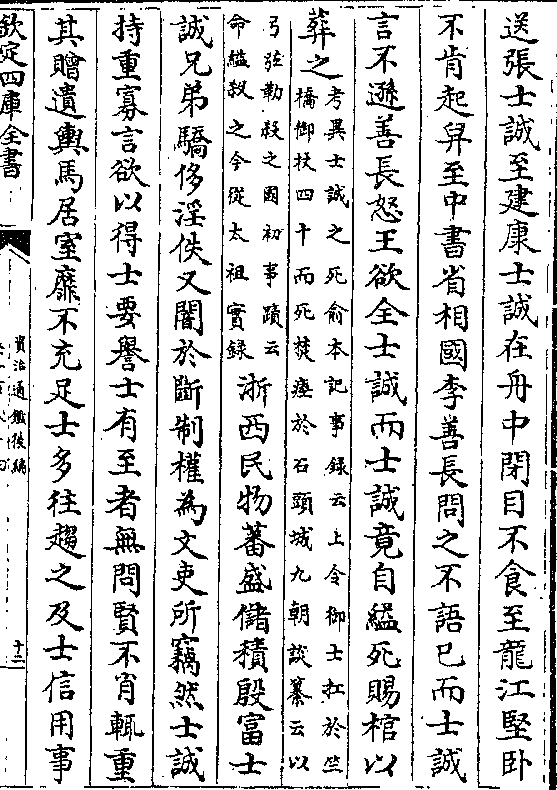 送張士誠至建康士誠在舟中閉目不食至龍江堅卧
不肯起舁至中書省相國李善長問之不語已而士誠
言不遜善長怒王欲全士誠而士誠竟自縊死賜棺以
葬之
考異士誠之死俞本記事録云上令御士扛於竺
橋御杖四十而死焚瘞於石頭城九朝談纂云以
弓弦勒殺之國初事蹟云
命縊殺之今從太祖實録
浙西民物蕃盛儲積殷富士
誠兄弟驕侈淫佚又闇於斷制權為文吏所竊然士誠
持重寡言欲以得士要譽士有至者無問賢不肖輒重
其贈遺輿馬居室靡不充足士多往趨之及士信用事
欽定四庫全書
資治通鑑後編
十二